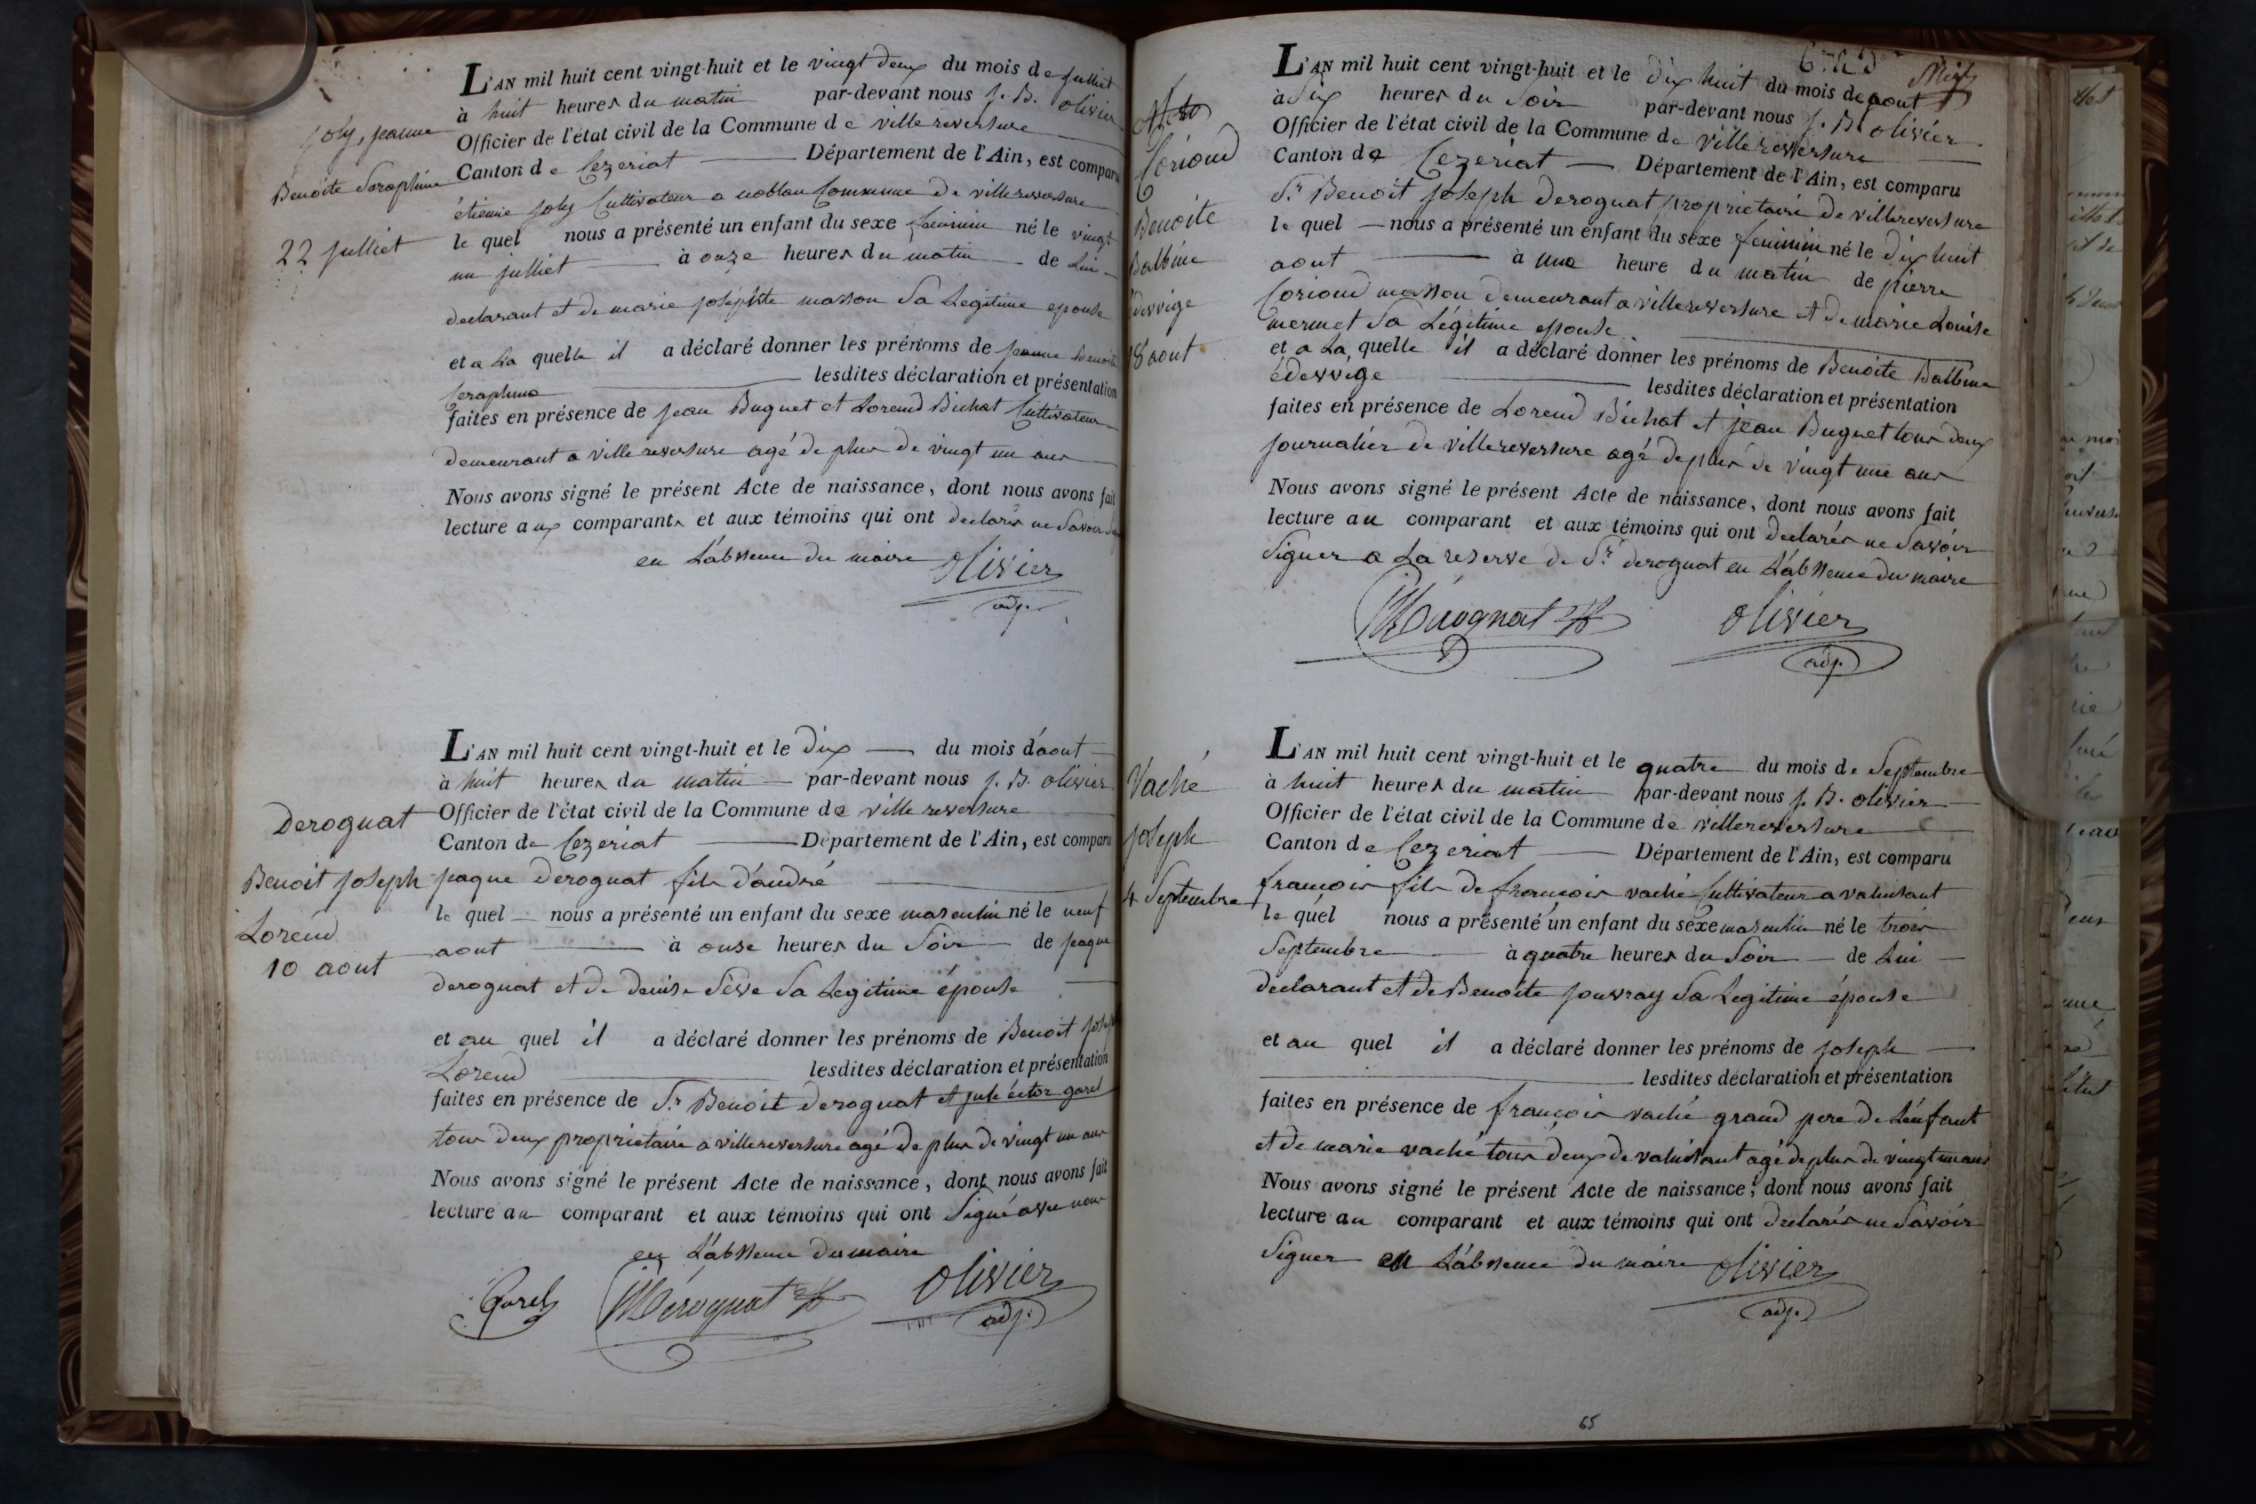 joly, jeanne
Benoite Seraphine
22 juillet
L'AN mil huit cent vingt-huit et le vingt deux du mois de juillet
à huit heures du matin par-devant nous J. B. olivier
Officier de l'état civil de la Commune de villereversure
Canton de Cezeriat Département de l'Ain, est comparu
étienne joly Cultivateur a noblan Commune de villereversure
le quel nous a présenté un enfant du sexe feminin né le vingt
un juillet à onze heures du matin de Lui
declarant et de marie josephte masson Sa Legitime epouse
et a La quelle il a déclaré donner les prénoms de jeanne benoite
Seraphine lesdites déclaration et présentation
faites en présence de jean Buguet et Lorend Bichat Cultivateur
demeurant a villereversure agé de plus de vingt un ans
Nous avons signé le présent Acte de naissance, dont nous avons fait
lecture aux comparants et aux témoins qui ont declarés ne Savoir
en L'abssence du maire olivier
adj.
Deroguat
Benoit joseph
Lorend
10 aout
L'AN mil huit cent vingt-huit et le dix du mois d'aout
à huit heures du matin par-devant nous J. B. olivier
Officier de l'état civil de la Commune de villereversure
Canton de Cezeriat Département de l'Ain, est comparu
jaque deroguat fils d'andré
le quel nous a présenté un enfant du sexe masculin né le neuf
aout à onse heures du Soir de jaque
deroguat et de denise Séve Sa Legitime épouse
et au quel il a déclaré donner les prénoms de Benoit joseph
Lorend lesdites déclaration et présentation
faites en présence de Sr Benoit deroguat et jule éctor garel
tous deux proprietaire a villereversure agé de plus de vingt un ans
Nous avons signé le présent Acte de naissance, dont nous avons fait
lecture au comparant et aux témoins qui ont Signé avec nous
en L'abssence du maire
Garel Déroguat olivier
adj.
Corioud
Benoite
Balbine
édevvige
18 aout
L'AN mil huit cent vingt-huit et le dix huit du mois de aout
à Six heures du Soir par-devant nous J. B. olivier
Officier de l'état civil de la Commune de villereversure
Canton de Cezeriat Département de l'Ain, est comparu
Sr Benoit joseph deroguat proprietaire de villereversure
le quel nous a présenté un enfant du sexe feminin né le dix huit
aout à une heure du matin de pierre
Corioud masson demeurant a villereversure et de marie Louise
mermet Sa Légitime epouse
et a La quelle il a déclaré donner les prénoms de Benoite Balbine
édevvige lesdites déclaration et présentation
faites en présence de Lorend Bichat et jean Buguet tous deux
journalier de villereversure agé de plus de vingt une ans
Nous avons signé le présent Acte de naissance, dont nous avons fait
lecture au comparant et aux témoins qui ont declarés ne Savoir
Signer a La reserve de Sr deroguat en L'abssence du maire
Déroguat olivier
adj.
Vaché
joseph
4 Septembre
L'AN mil huit cent vingt-huit et le quatre du mois de Septembre
à huit heures du matin par-devant nous J. B. olivier
Officier de l'état civil de la Commune de villereversure
Canton de Cezeriat Département de l'Ain, est comparu
françois fils de françois vaché Cultivateur a valuisant
le quel nous a présenté un enfant du sexe masculin né le trois
Septembre à quatre heures du Soir de Lui
declarant et de Benoite jouvray Sa Legitime épouse
et au quel il a déclaré donner les prénoms de joseph
lesdites déclaration et présentation
faites en présence de françois vaché grand pere de L'énfant
et de marie vaché tous deux de valuisant agé de plus de vingt un ans
Nous avons signé le présent Acte de naissance, dont nous avons fait
lecture au comparant et aux témoins qui ont declarés ne Savoir
Signer en L'abssence du maire olivier
adj.
65